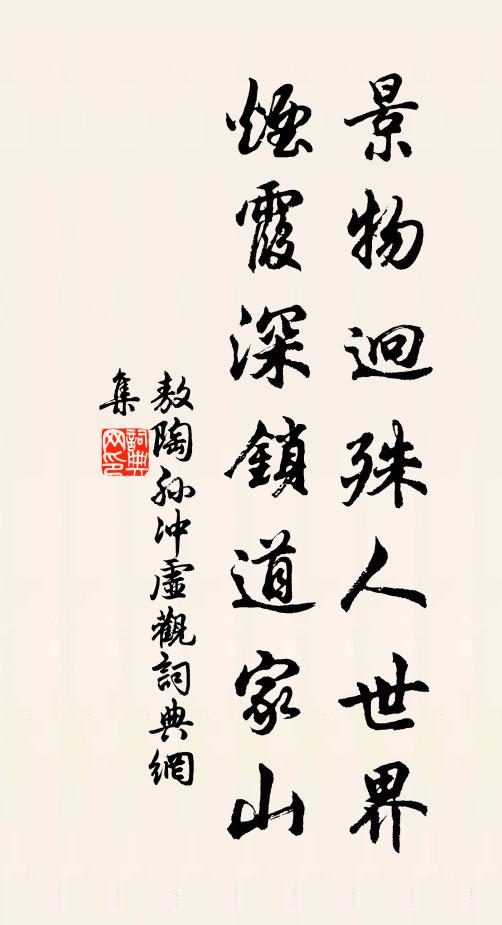 景物迥殊人世界
煙霞深鎖道家山
敖陶孫沖虛觀詞典網
集
詞典网印